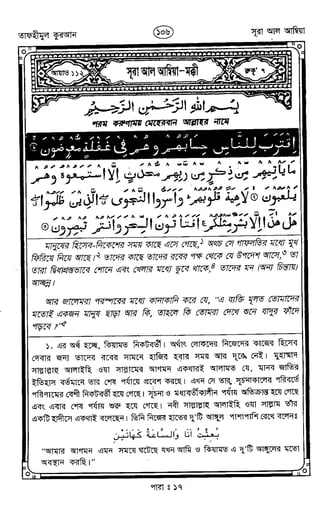 তাফহীমুল কুরআন
১০৬
সূরা আল আম্বিয়া
আয়াত ১১২
সূরা আল আম্বিয়া-মক্কী
রুকূ' ৭
بِسْمِ اللّٰهِ الرَّحْمٰنِ الرَّحِيْمِ
পরম করুণাময় মেহেরবান আল্লাহর নামে
اِقْتَرَبَ لِلنَّاسِ حِسَابُهُمْ وَهُمْ فِيْ غَفْلَةٍ مُّعْرِضُوْنَ ۞
مَا يَاْتِيْهِمْ مِّنْ ذِكْرٍ مِّنْ رَّبِّهِمْ مُّحْدَثٍ اِلَّا اسْتَمَعُوْهُ وَهُمْ
يَلْعَبُوْنَ ۞ لَاهِيَةً قُلُوْبُهُمْ ۖ وَاَسَرُّوا النَّجْوَى الَّذِيْنَ ظَلَمُوْا
هَلْ هٰذَا اِلَّا بَشَرٌ مِّثْلُكُمْ اَفَتَاْتُوْنَ السِّحْرَ وَاَنْتُمْ تُبْصِرُوْنَ ۞
মানুষের হিসেব-নিকেশের সময় কাছে এসে গেছে,১ অথচ সে গাফলতির মধ্যে মুখ
ফিরিয়ে নিয়ে আছে।২ তাদের কাছে তাদের রবের পক্ষ থেকে যে উপদেশ আসে,৩ তা
তারা দ্বিধাগ্রস্তভাবে শোনে এবং খেলার মধ্যে ডুবে থাকে,৪ তাদের মন (অন্য চিন্তায়)
আচ্ছন্ন।
আর জালেমরা পরস্পরের মধ্যে কানাকানি করে যে, "এ ব্যক্তি মূলত তোমাদের
মতোই একজন মানুষ ছাড়া আর কি, তাহলে কি তোমরা দেখে শুনে যাদুর ফাঁদে
পড়বে?"৫
১. এর অর্থ হচ্ছে, কিয়ামত নিকটবর্তী। অর্থাৎ লোকদের নিজেদের কাজের হিসেব
দেবার জন্য তাদের রবের সামনে হাজির হবার সময় আর দূরে নেই। মুহাম্মাদ
সাল্লাল্লাহু আলাইহি ওয়া সাল্লামের আগমন একথারই আলামত যে, মানব জাতির
ইতিহাস বর্তমানে তার শেষ পর্যায়ে প্রবেশ করছে। এখন সে তার, সূচনাকালের পরিবর্তে
পরিণামের বেশী নিকটবর্তী হয়ে গেছে। সূচনা ও মধ্যবর্তীকালীন পর্যায় অতিক্রান্ত হয়ে গেছে
এবং এবার শেষ পর্যায় শুরু হয়ে গেছে। নবী সাল্লাল্লাহু আলাইহি ওয়া সাল্লাম তাঁর
একটি হাদীসে একথাই বলেছেন। তিনি নিজের হাতের দু'টি আঙ্গুল পাশাপাশি রেখে বলেনঃ
بُعِثْتُ اَنَا وَالسَّاعَةُ كَهَاتَيْنِ
"আমার আগমন এমন সময়ে ঘটেছে যখন আমি ও কিয়ামত এ দু'টি আঙ্গুলের মতো
অবস্থান করছি।"
পারা : ১৭